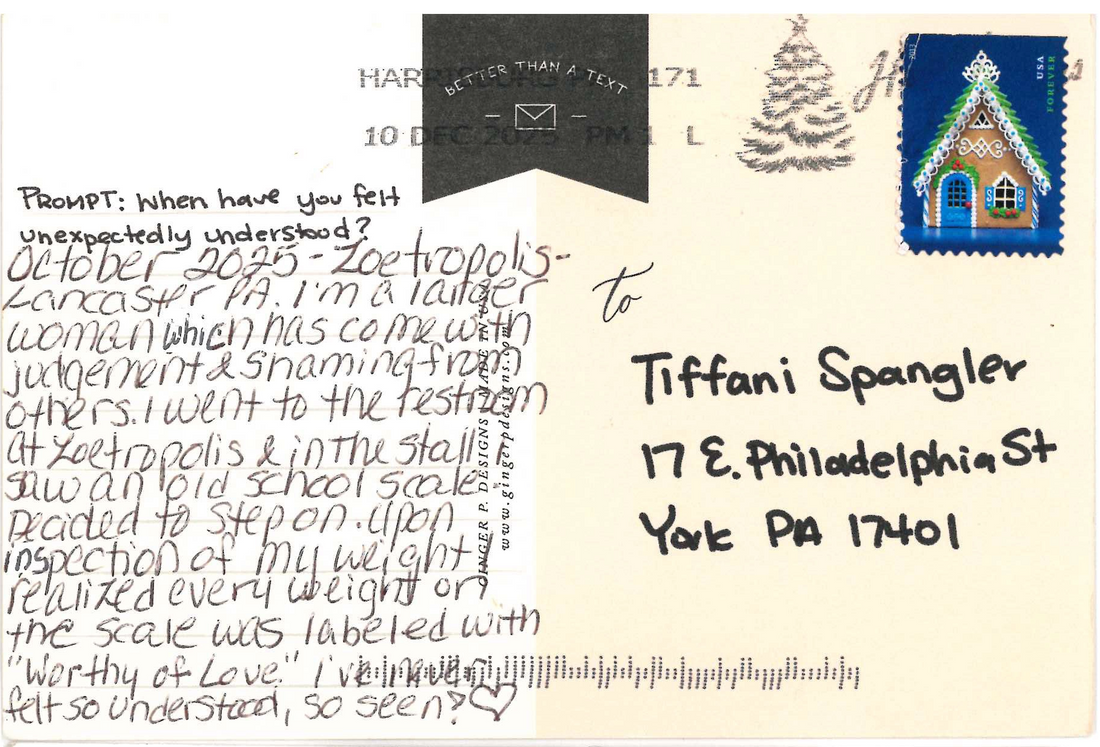 BETTER THAN A TEXT
171
10 DEC 2025 PM 1 L
2013
USA
FOREVER
PROMPT: When have you felt
unexpectedly understood?
October 2025 - Zoetropolis -
Lancaster PA. I'm a larger
woman which has come with
judgement & shaming from
others. I went to the restroom
at Zoetropolis & in the stall I
saw an old school scale
Decided to step on. Upon
inspection of my weight I
realized every weight on
the scale was labeled with
"Worthy of Love." I've never
felt so understood, so seen? ♡
GINGER P. DESIGNS MADE IN USA
www.gingerpdesigns.com
to
Tiffani Spangler
17 E. Philadelphia St
York PA 17401